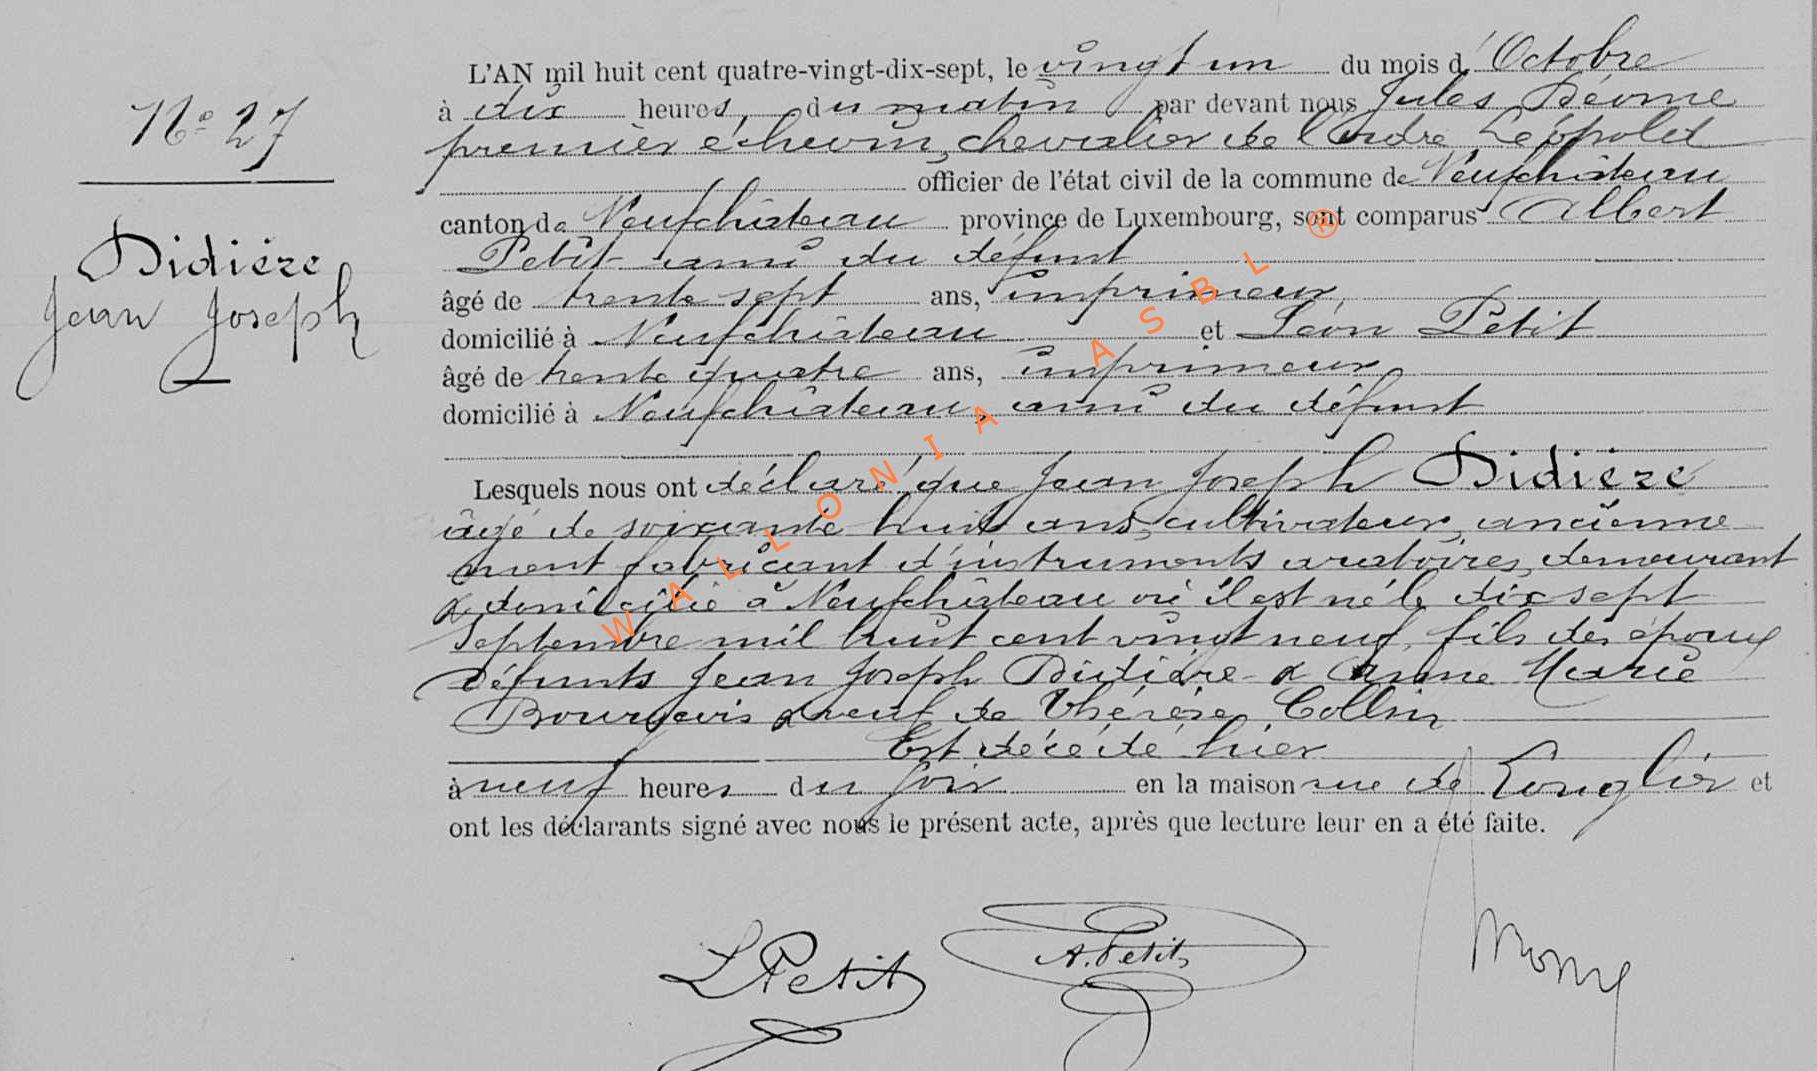 N° 27
Didiére
Jean Joseph
L'AN mil huit cent quatre-vingt-dix-sept, le vingt un du mois d'Octobre
à dix heures, du matin par devant nous Jules
premier échevin, chevalier de l'Ordre Léopold
officier de l'état civil de la commune de Neufchâteau
canton de Neufchâteau province de Luxembourg, sont comparus Albert
Petit ami du défunt
âgé de trente sept ans, imprimeur,
domicilié à Neufchâteau et Léon Petit
âgé de trente quatre ans, imprimeur
domicilié à Neufchâteau, ami du défunt
Lesquels nous ont déclaré que Jean Joseph Didiére
âgé de soixante huit ans, cultivateur, ancienne
ment fabricant d'instruments aratoires, demeurant
& domicilié à Neufchâteau où il est né le dix sept
Septembre mil huit cent vingt neuf, fils des époux
défunts Jean Joseph Didière & Anne Marie
Bourgeois & veuf de Thérèse Collin
Est décédé hier
à neuf heures du soir en la maison rue de Longlier et
ont les déclarants signé avec nous le présent acte, après que lecture leur en a été faite.
L Petit
A. Petit
WALLONIA ASBL ®